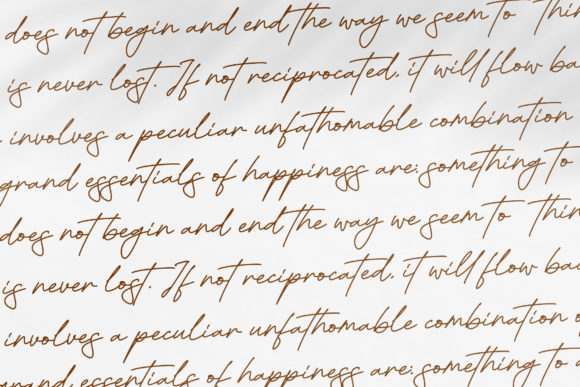 does not begin and end the way we seem to thin
is never lost. If not reciprocated, it will flow ba
involves a peculiar unfathomable combination
grand essentials of happiness are: something to
does not begin and end the way we seem to thin
is never lost. If not reciprocated, it will flow ba
involves a peculiar unfathomable combination
grand essentials of happiness are: something to